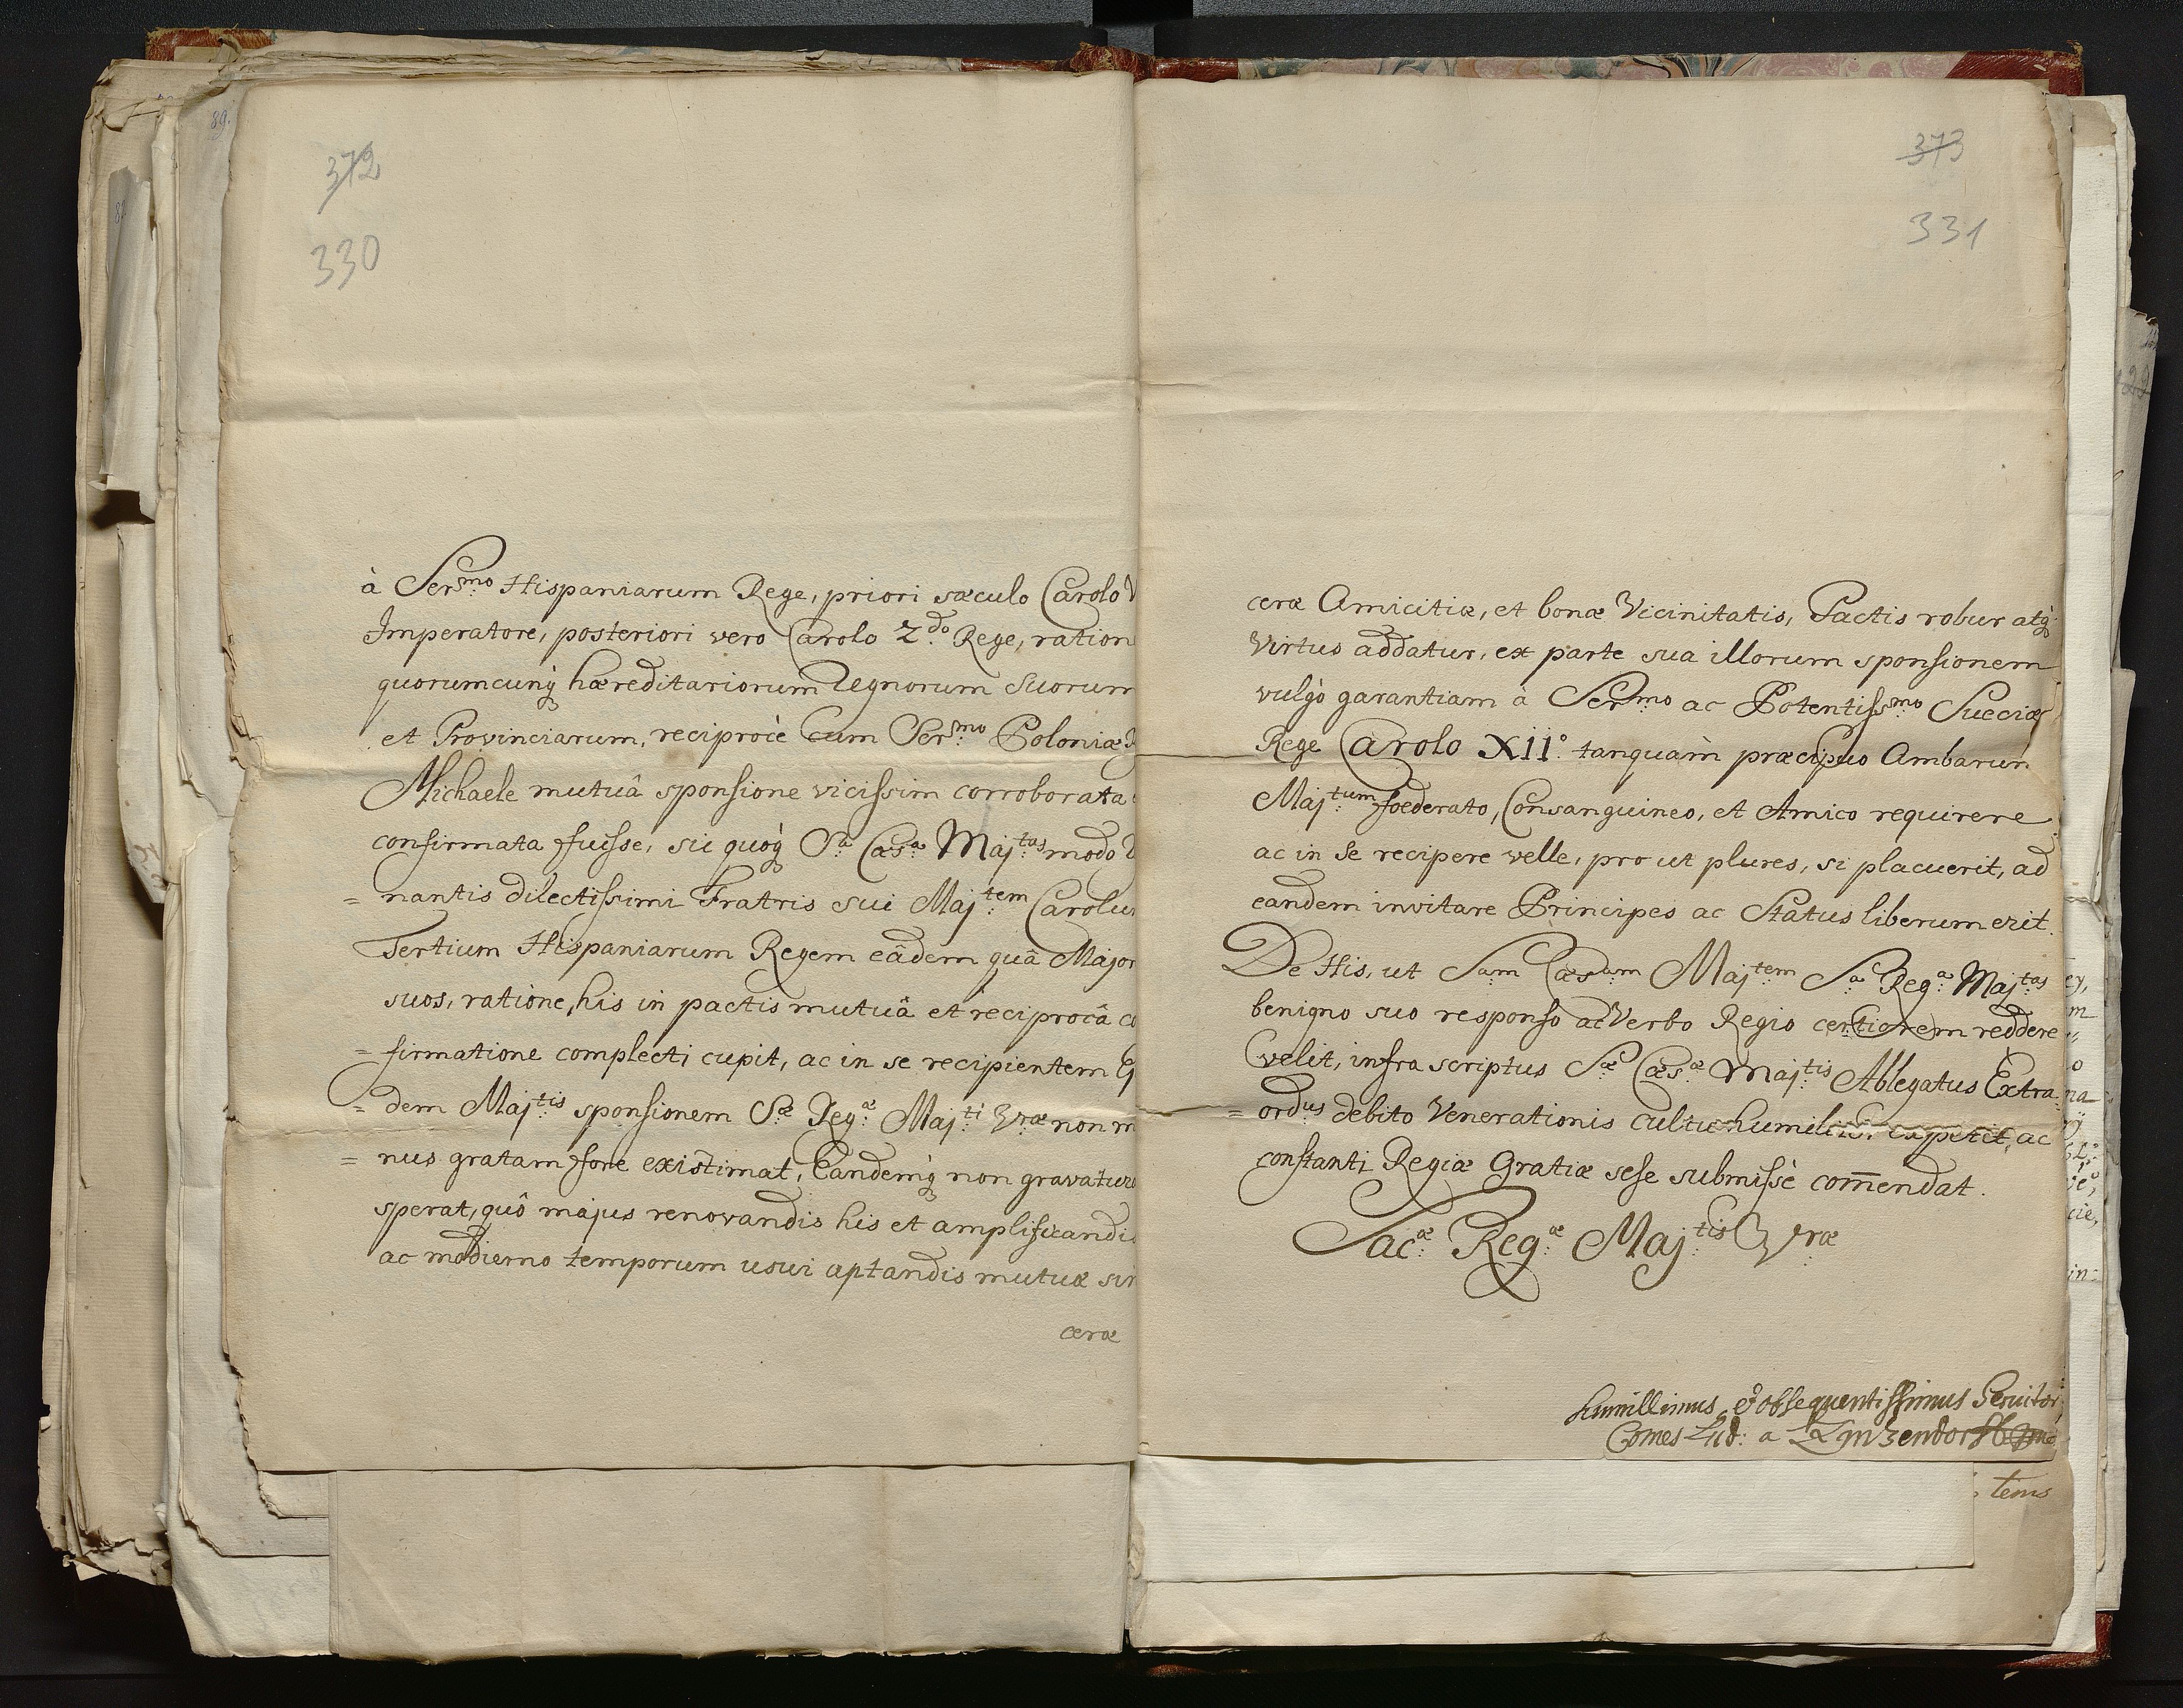 372
330
à Ser:mo Hispaniarum Rege, priori sæculo Carolo V
Imperatore, posteriori vero Carolo 2:do Rege, ration
quorumcunq hæreditariorum Regnorum Suorum
et Provinciarum, reciprocè Cum Ser:mo Poloniæ R
Michaele mutuâ sponsione vicissim corroborata
confirmata fuisse, sic quoq S:a Cæs:a Maj:tas modo
= nantis dilectissimi Fratris sui Maj:tem Carolu
Tertium Hispaniarum Regem eâdem quâ Major
suos, ratione, his in pactis mutuâ et reciprocâ co
= firmatione complecti cupit, ac in se recipientem
= dem Maj:tis sponsionem S:æ Reg:æ Maj:ti Vræ non m
= nus gratam fore existimat, Eandemq non gravatur
sperat, quô majus renovandis his et amplificandis
ac modierno temporum usui aptandis mutuæ sin
ceræ
373
331
ceræ Amicitiæ, et bonæ Vicinitatis, Pactis robur atq
Virtus addatur, ex parte sua illorum sponsionem
vulgò garantiam à Ser:mo ac Potentiss:mo Sueciæ
Rege Carolo XII:o tanquam præcipuo Ambarum
Maj:tum foederato, Consanguineo, et Amico requirere
ac in se recipere velle, pro ut plures, si placuerit, ad
eandem invitare Principes ac Status liberum erit.
De His, ut S:am Cæs:am Maj:tem S:a Reg:a Maj:tas
benigno suo responso ac Verbo Regio certiorem reddere
velit, infra scriptus S:æ Cæs:æ Maj:tis Ablegatus Extra
= ord:us debito Venerationis cultu humiliter expetit, ac
constanti Regiæ Gratiæ sese submissè com̄endat.
Sac:æ Reg:æ Maj:tis Vræ
humillimus & obsequentissimus Servitor
Comes Lud: a Zinzendorf
tems